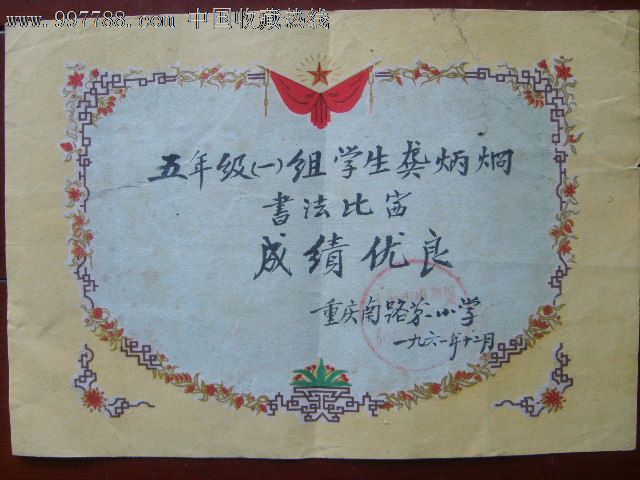 www.997788.com 中国收藏热线
五年级(一)组学生龚炳炯
書法比啬
成績优良
重庆南路第一小学
一九六一年十二月